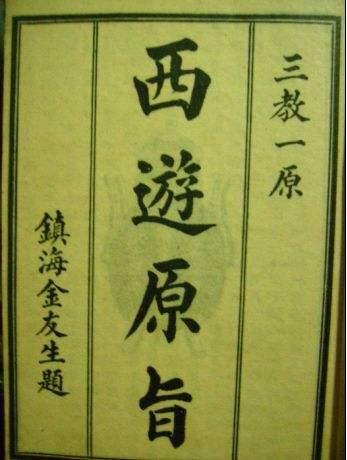 三教一原
西遊原旨
鎮海金友生題